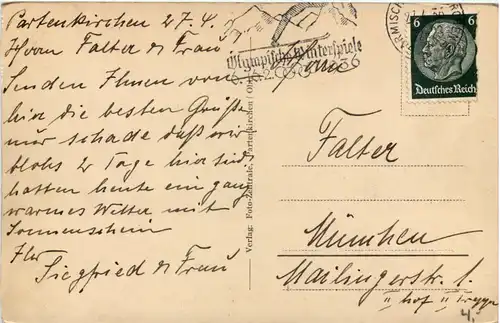 Partenkirchen 27.4.
Herrn Falter & Frau
Senden Ihnen von
hir die besten Grüße
nur schade daß wir
blohs 2 Tage hir sind
hatten heute ein ganz
warmes Wetter mit
Sonnenschein
Ihr
Siegfried & Frau
Olympische Winterspiele
6.-16.2. 1936
Verlag: Foto-Zentrale, Partenkirchen
6 6
Deutsches Reich
Falter
München
Mailingerstr. 1.
II hof II
4,-